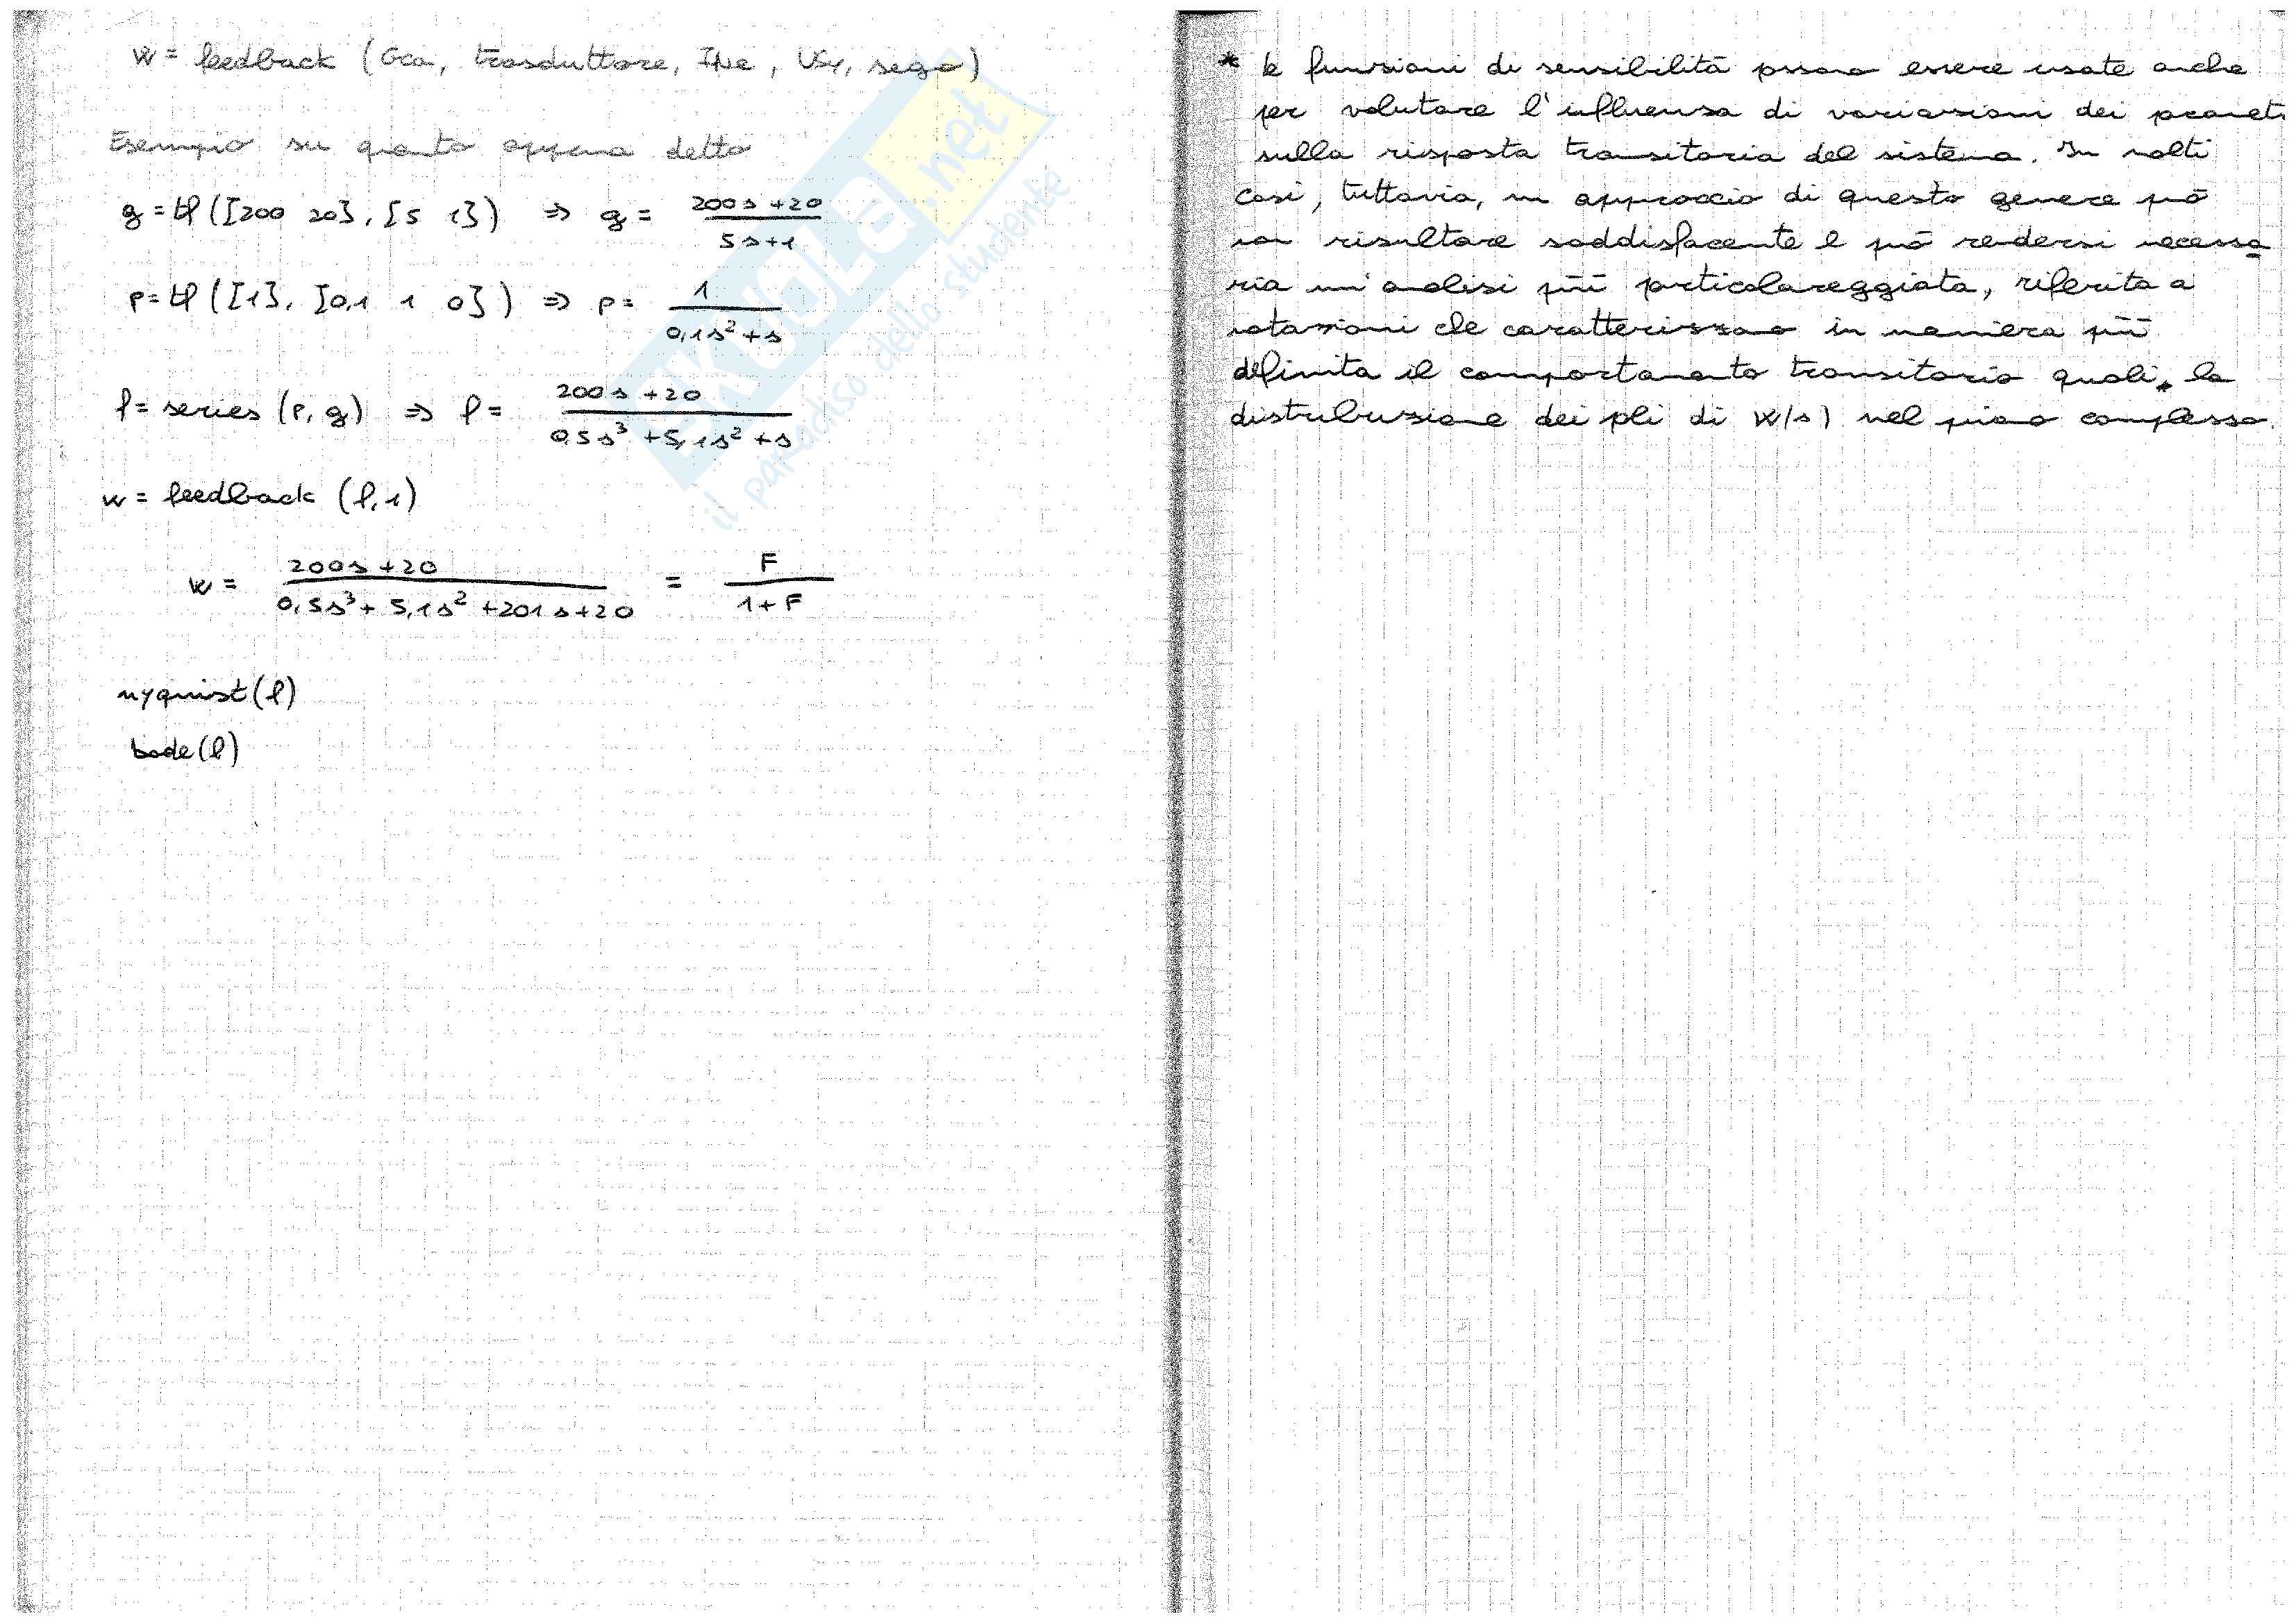 W = feedback (Gca, trasduttore, INe, USy, segno)
Esempio su quanto appena detto
g = tf ([200 20], [5 1]) ⇒ g = (200s + 20) / (5s + 1)
p = tf ([1], [0,1 1 0]) ⇒ p = 1 / (0,1s² + s)
f = series (p, g) ⇒ f = (200s + 20) / (0,5s³ + 5,1s² + s)
w = feedback (f, 1)
w = (200s + 20) / (0,5s³ + 5,1s² + 201s + 20) = F / (1 + F)
nyquist (f)
bode (f)
.net
il paradiso dello studente
* le funzioni di sensibilità possono essere usate anche
per valutare l'influenza di variazioni dei paramet
sulla risposta transitoria del sistema. In molti
casi, tuttavia, un approccio di questo genere può
non risultare soddisfacente e può rendersi necessa
ria un'analisi più particolareggiata, riferita a
notazioni che caratterizzano in maniera più
definita il comportamento transitorio quali, la
distribuzione dei poli di W(s) nel piano complesso.